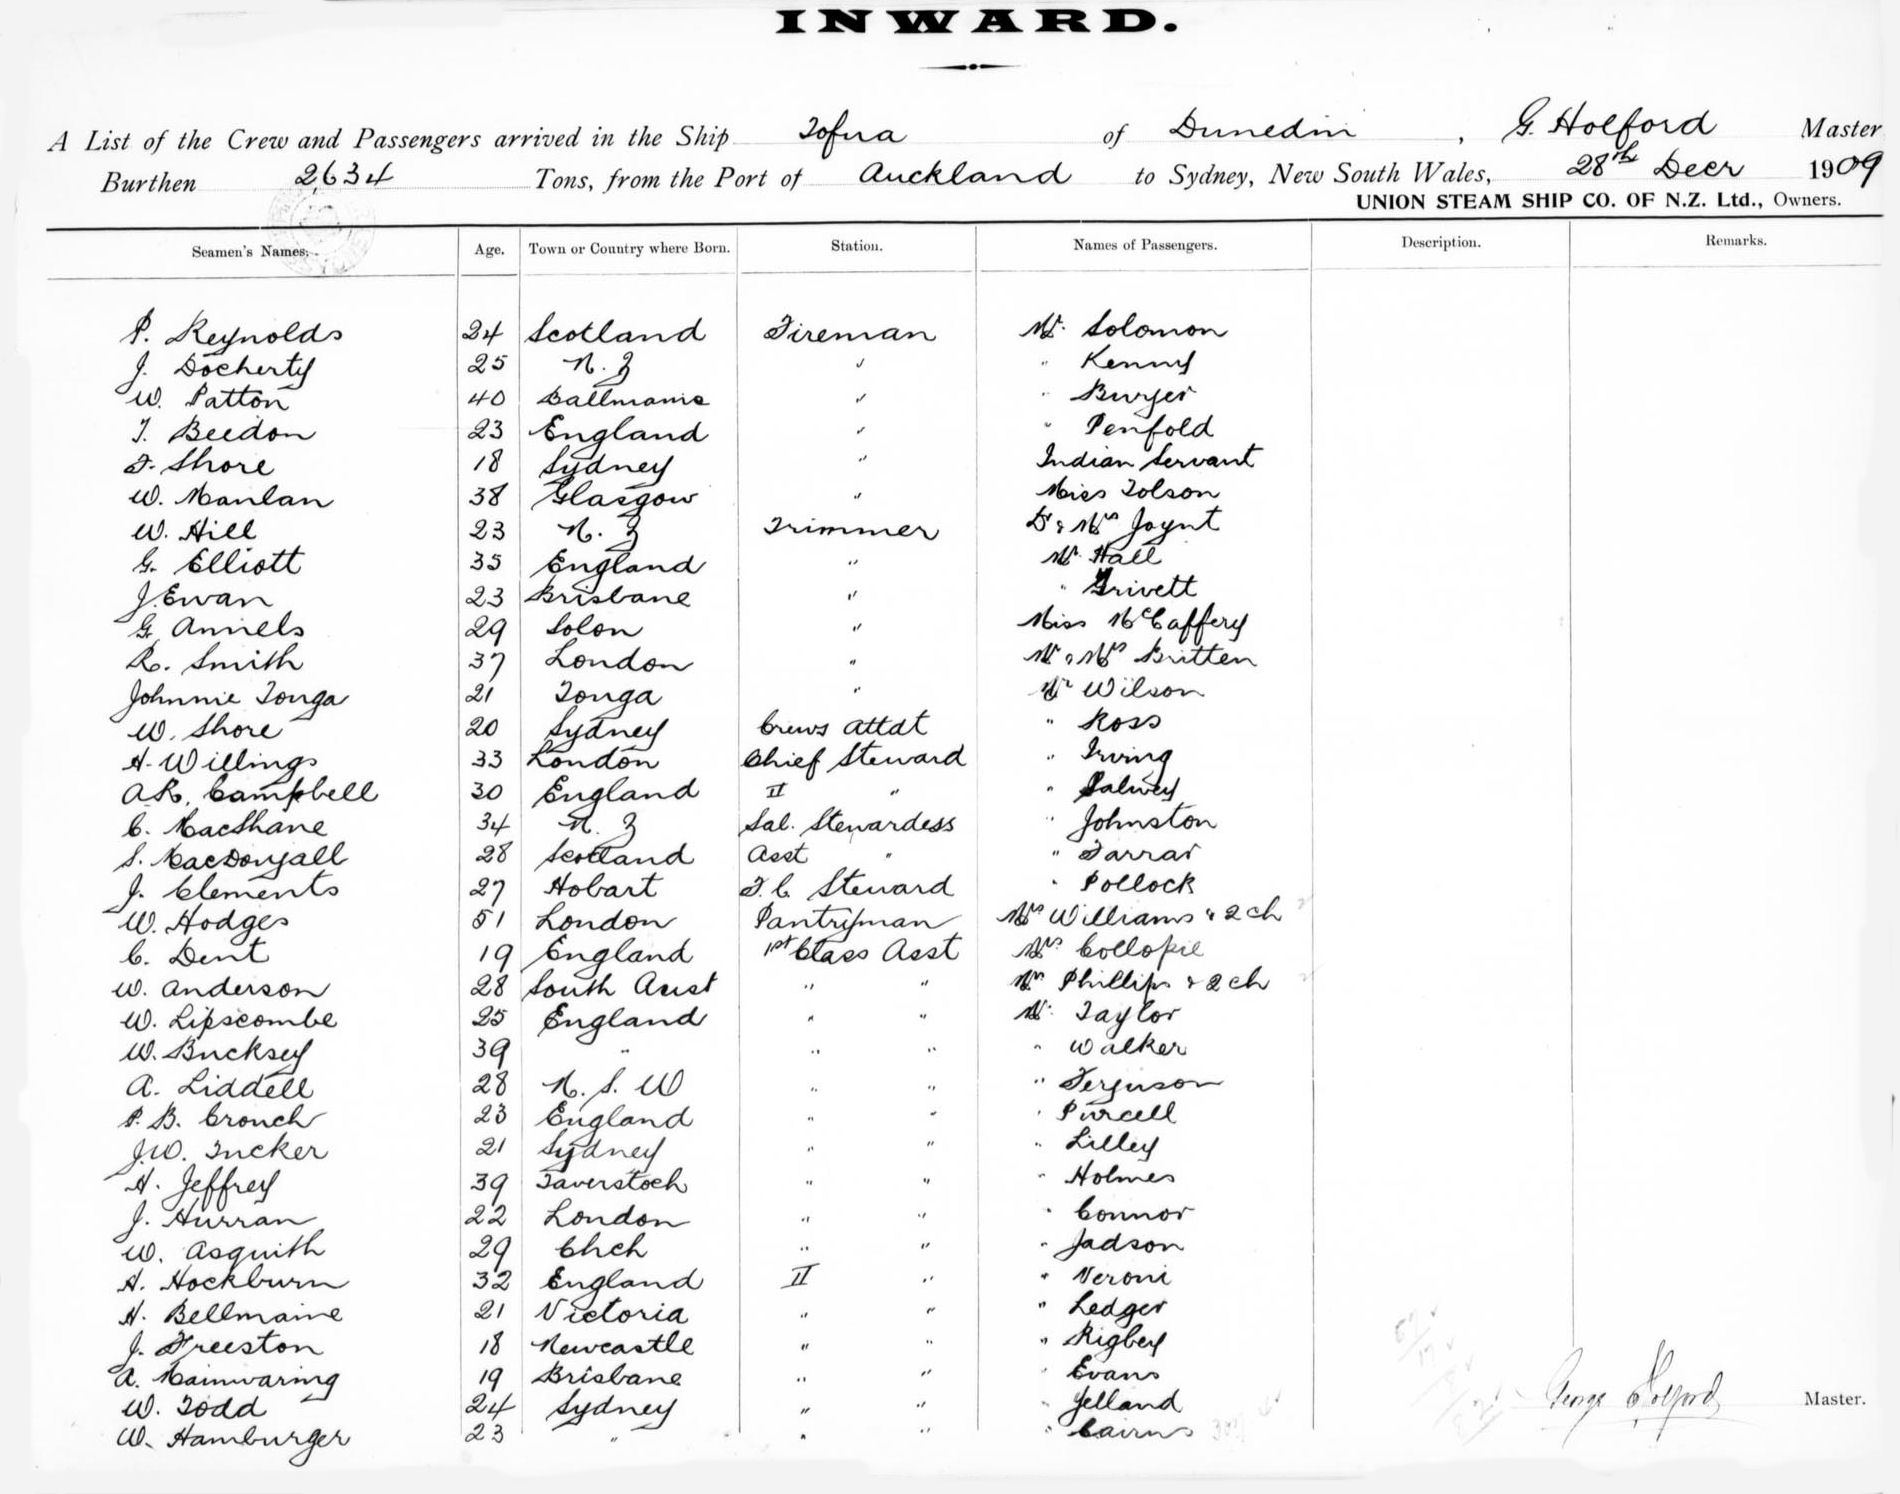 INWARD.
A List of the Crew and Passengers arrived in the Ship Tofua of Dunedin, G. Holford Master
Burthen 2634 Tons, from the Port of Auckland to Sydney, New South Wales, 28th Decr 1909
UNION STEAM SHIP CO. OF N.Z. Ltd., Owners.
Seamen's Names. Age. Town or Country where Born. Station. Names of Passengers. Description. Remarks.
P. Reynolds 24 Scotland Fireman Mr. Solomon
J. Docherty 25 N. Z " " Kenny
W. Patton 40 " " Burger
T. Beedon 23 England " " Penfold
F. Shore 18 Sydney " Indian Servant
W. Manlan 38 Glasgow " Miss Tolson
W. Hill 23 N. Z Trimmer Dr & Mrs Joynt
G. Elliott 35 England " Mr. Hall
J. Ewan 23 Brisbane " " Grivett
G. Anniels 29 Solon " Miss McCaffery
R. Smith 37 London " Mr & Mrs Britten
Johnnie Tonga 21 Tonga " Mr Wilson
W. Shore 20 Sydney Crews Attdt " Ross
H. Willings 33 London Chief Steward " Irving
A.R. Campbell 30 England II " "
C. MacShane 34 N. Z Sal. Stewardess " Johnston
S. MacDougall 28 Scotland Asst " " Farrar
J. Clements 27 Hobart F.C. Steward " Pollock
W. Hodges 51 London Pantryman Mrs Williams & 2 ch
C. Dent 19 England 1st Class Asst Mrs. Collopie
W. Anderson 28 South Aust " " Mrs Phillips & 2 ch
W. Lipscombe 25 England " " Mr. Taylor
W. Bucksey 39 " " " " Walker
A. Liddell 28 N. S. W " " " Ferguson
P. B. Crouch 23 England " " " Purcell
J.W. Tucker 21 Sydney " " " Lilley
H. Jeffrey 39 Taverstock " " " Holmes
J. Hurran 22 London " " " Connor
W. Asquith 29 Chch " " " Jadson
H. Hockburn 32 England II " " Veroni
H. Bellmaine 21 Victoria " " " Ledger
J. Freeston 18 Newcastle " " " Rigbey
A. Mainwaring 19 Brisbane " " " Evans
W. Todd 24 Sydney " " " Jelland
George Holford Master.
W. Hamburger 23 " " " " Cairns